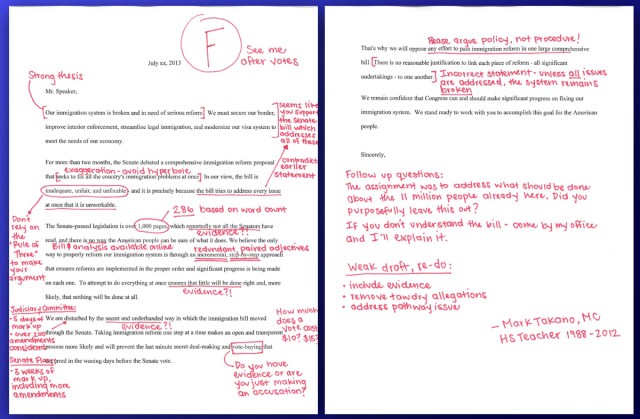 F
See me
after votes
July xx, 2013
Strong thesis
Mr. Speaker,
Our immigration system is broken and in need of serious reform. We must secure our border,
improve interior enforcement, streamline legal immigration, and modernize our visa system to
meet the needs of our economy.
seems like
you support
the Senate
bill which
addresses
all of these
For more than two months, the Senate debated a comprehensive immigration reform proposal
exaggeration-avoid hyperbole
that seeks to fix all the country's immigration problems at once. In our view, the bill is
inadequate, unfair, and unfixable - and it is precisely because the bill tries to address every issue
at once that it is unworkable.
contradicts
earlier
statement
Don't
rely on
the
"Rule of
Three"
to make
your
argument
286 based on word count
The Senate-passed legislation is over 1,000 pages which reportedly not all the Senators have
evidence?!
read, and there is no way the American people can be sure of what it does. We believe the only
Bill & analysis available online
redundant, paired adjectives
way to properly reform our immigration system is through an incremental, step-by-step approach
that ensures reforms are implemented in the proper order and significant progress is being made
on each one. To attempt to do everything at once ensures that little will be done right and, more
evidence?!
likely, that nothing will be done at all.
Judiciary Committee:
• 5 days of
mark up
• over 200
amendments
considered
Senate Floor:
• 3 weeks of
mark up,
including more
amendments
We are disturbed by the secret and underhanded way in which the immigration bill moved
evidence?!
through the Senate. Taking immigration reform one step at a time makes an open and transparent
process more likely and will prevent the last minute secret deal-making and vote-buying that
occurred in the waning days before the Senate vote.
How much
does a
vote cost?
$10? $15?
Do you have
evidence or are
you just making
an accusation?
Please argue policy, not procedure!
That's why we will oppose any effort to pass immigration reform in one large comprehensive
bill. There is no reasonable justification to link each piece of reform - all significant
undertakings - to one another.
Incorrect statement - unless all issues
are addressed, the system remains
broken
We remain confident that Congress can and should make significant progress on fixing our
immigration system. We stand ready to work with you to accomplish this goal for the American
people.
Sincerely,
Follow up questions:
The assignment was to address what should be done
about the 11 million people already here. Did you
purposefully leave this out?
If you don't understand the bill - come by my office
and I'll explain it.
Weak draft, re-do:
• include evidence
• remove tawdry allegations
• address pathway issue
- Mark Takano, MC
HS Teacher 1988-2012